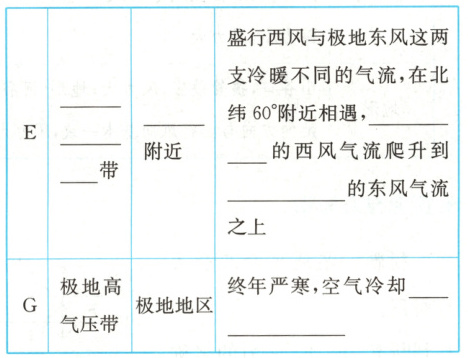 E
______
______
____带
______
附近
盛行西风与极地东风这两
支冷暖不同的气流,在北
纬60°附近相遇,________
____的西风气流爬升到
____________的东风气流
之上
G
极地高
气压带
极地地区
终年严寒,空气冷却____
____________